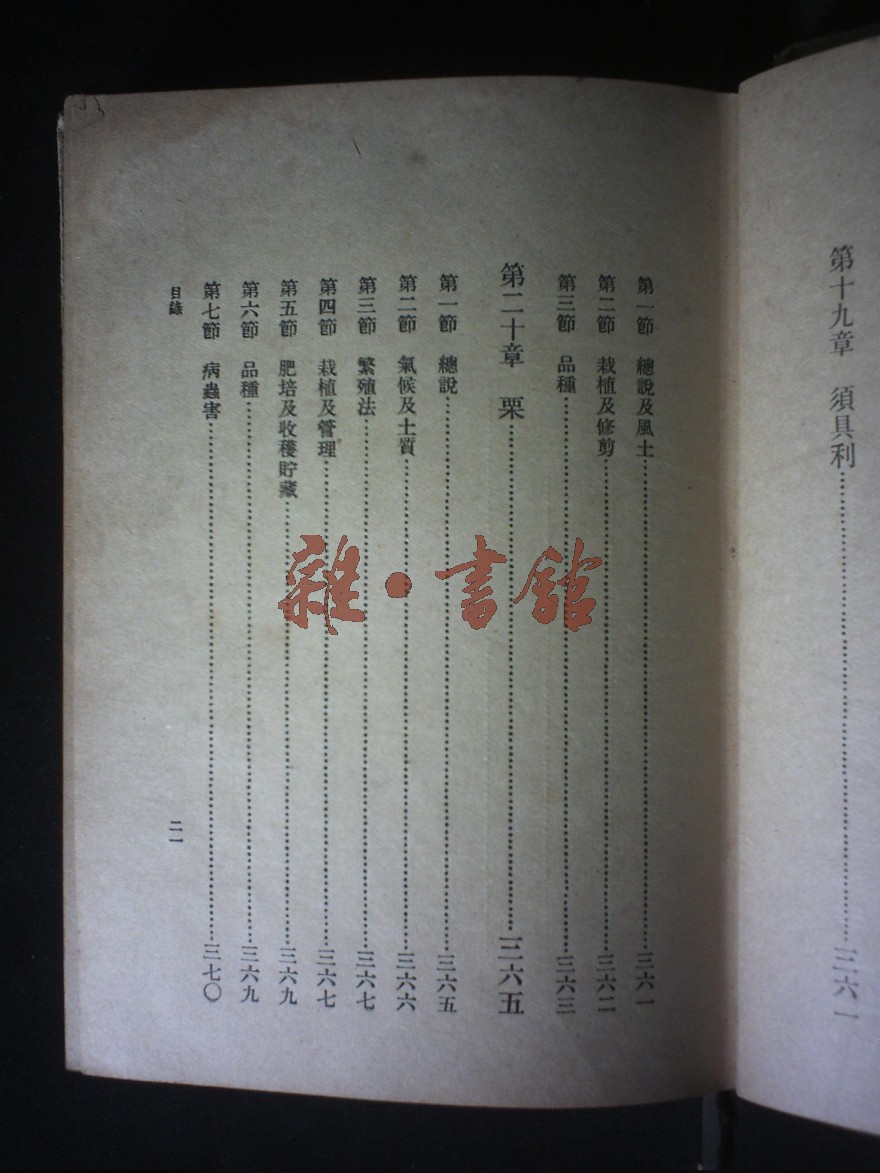 第十九章 須具利……三六一
第一節 總說及風土……三六一
第二節 栽植及修剪……三六二
第三節 品種……三六三
第二十章 栗……三六五
第一節 總說……三六五
第二節 氣候及土質……三六六
第三節 繁殖法……三六七
第四節 栽植及管理……三六七
第五節 肥培及收穫貯藏……三六九
第六節 品種……三六九
第七節 病蟲害……三七〇
目錄 二一
雜·書館